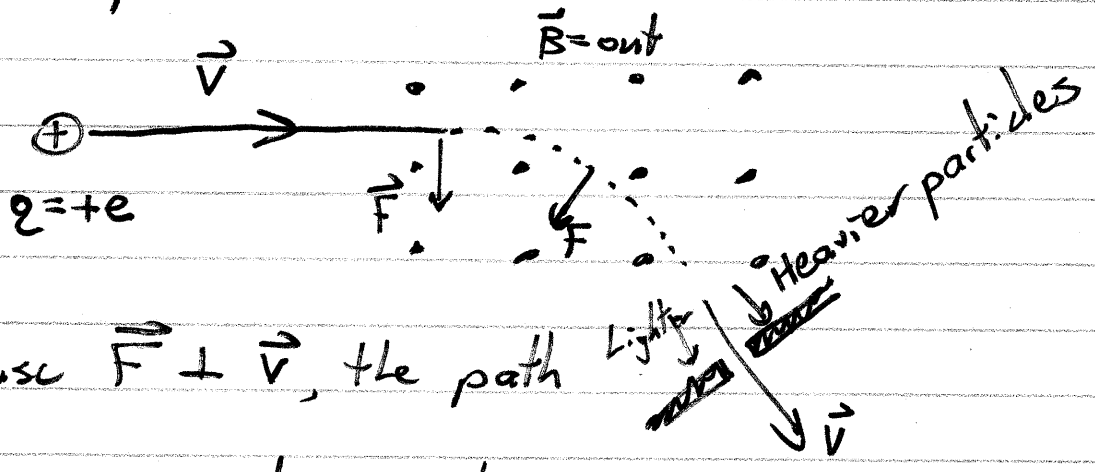 B⃗=out
V⃗
+
q=+e
F⃗
F
Heavier particles
Lighter
F⃗ ⊥ V⃗, the path
V⃗